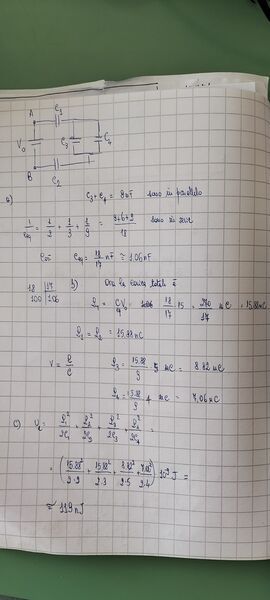 C₁
A
V₀
C₃
C₄
B
C₂
a)
C₃ + C₄ = 9 nF sono in parallelo
1/Ceq = 1/2 + 1/3 + 1/9 = sono in serie
Ceq = 18/17 nF ≅ 1.06 nF
18 | 17
100 | 1.06
b) la carica totale è
Q₁ = Q₂ = 15.88 nC
Q₃ = 15.88/9 5 nC = 8.82 nC
Q₄ = 15.88/9 4 nC = 7,06 nC
c) Uₑ = Q₁²/2C₁ + Q₂²/2C₂ + Q₃²/2C₃ + Q₄²/2C₄ =
= (15.88²/2·2 + 15.88²/2·3 + 8.82²/2·5 + 7.06²/2·4) 10⁻⁹ J =
≅ 119 nJ